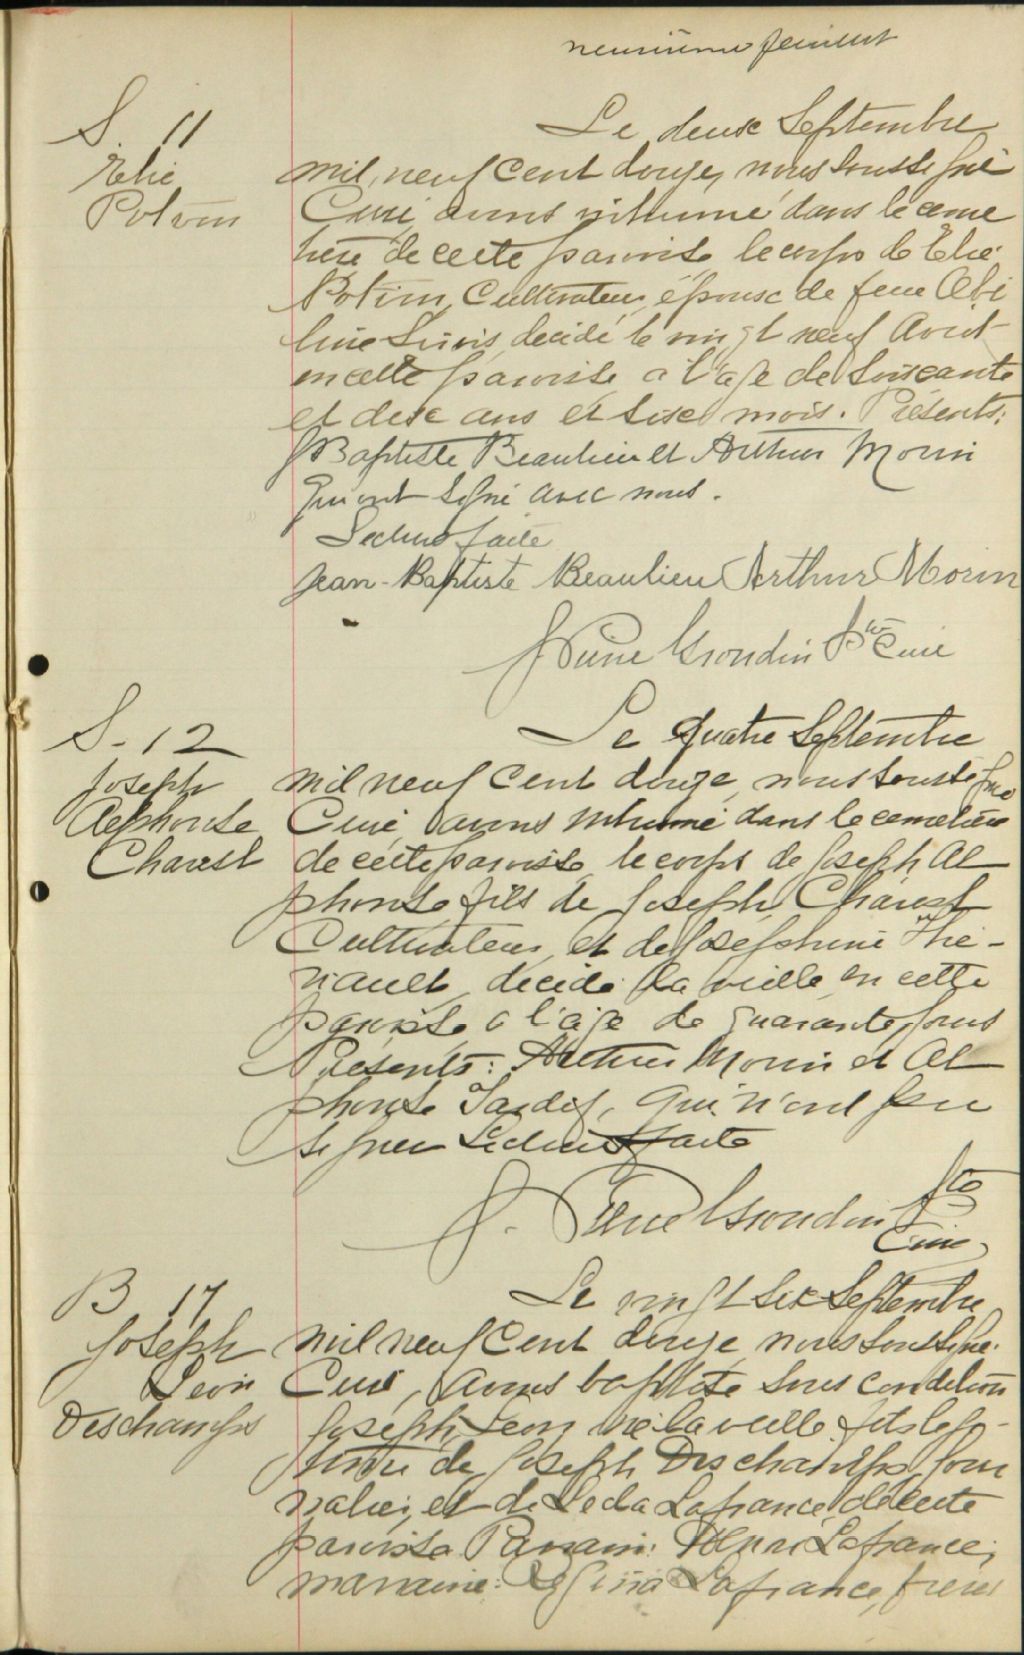 neuvième feuillet
S. 11
Elie
Potvin
Le deux Septembre
mil neuf cent douze, nous soussigné
Curé avons inhumé dans le cime
tière de cette paroisse le corps de Elie
Potvin, Cultivateur, épouse de feue
décédé le vingt neuf Août
en cette paroisse a l'age de soixante
et dix ans et six mois. Présents:
JBaptiste Beaulieu et Arthur Morin
qui ont signé avec nous.
Lecture faite
Jean-Baptiste Beaulieu Arthur Morin
J. Pierre Grondin Ptre Curé
S-12
Joseph
Alphonse
Charest
Le quatre Septembre
mil neuf cent douze, nous soussigné
Curé, avons inhumé dans le cimetière
de cette paroisse, le corps de Joseph Al
phonse fils de Joseph Charest
Cultivateur, et de Joséphine Thé-
riault, décédé la veille en cette
paroisse a l'age de quarante jours
Présents: Arthur Morin et Al
phonse Tardif, qui n'ont pu
signer Lecture faite
J. Pierre Grondin Ptre
Curé
B 17
Joseph
Léon
Deschamps
Le vingt six Septembre
mil neuf cent douze nous soussigné
Curé, avons baptisé sous condition
Joseph Léon né la veille fils légi-
time de Joseph Deschamps, jour
nalier, et de Léda Lafrance, de cette
paroisse Parrain: Henri Lafrance;
marraine: Régina Lafrance, frères